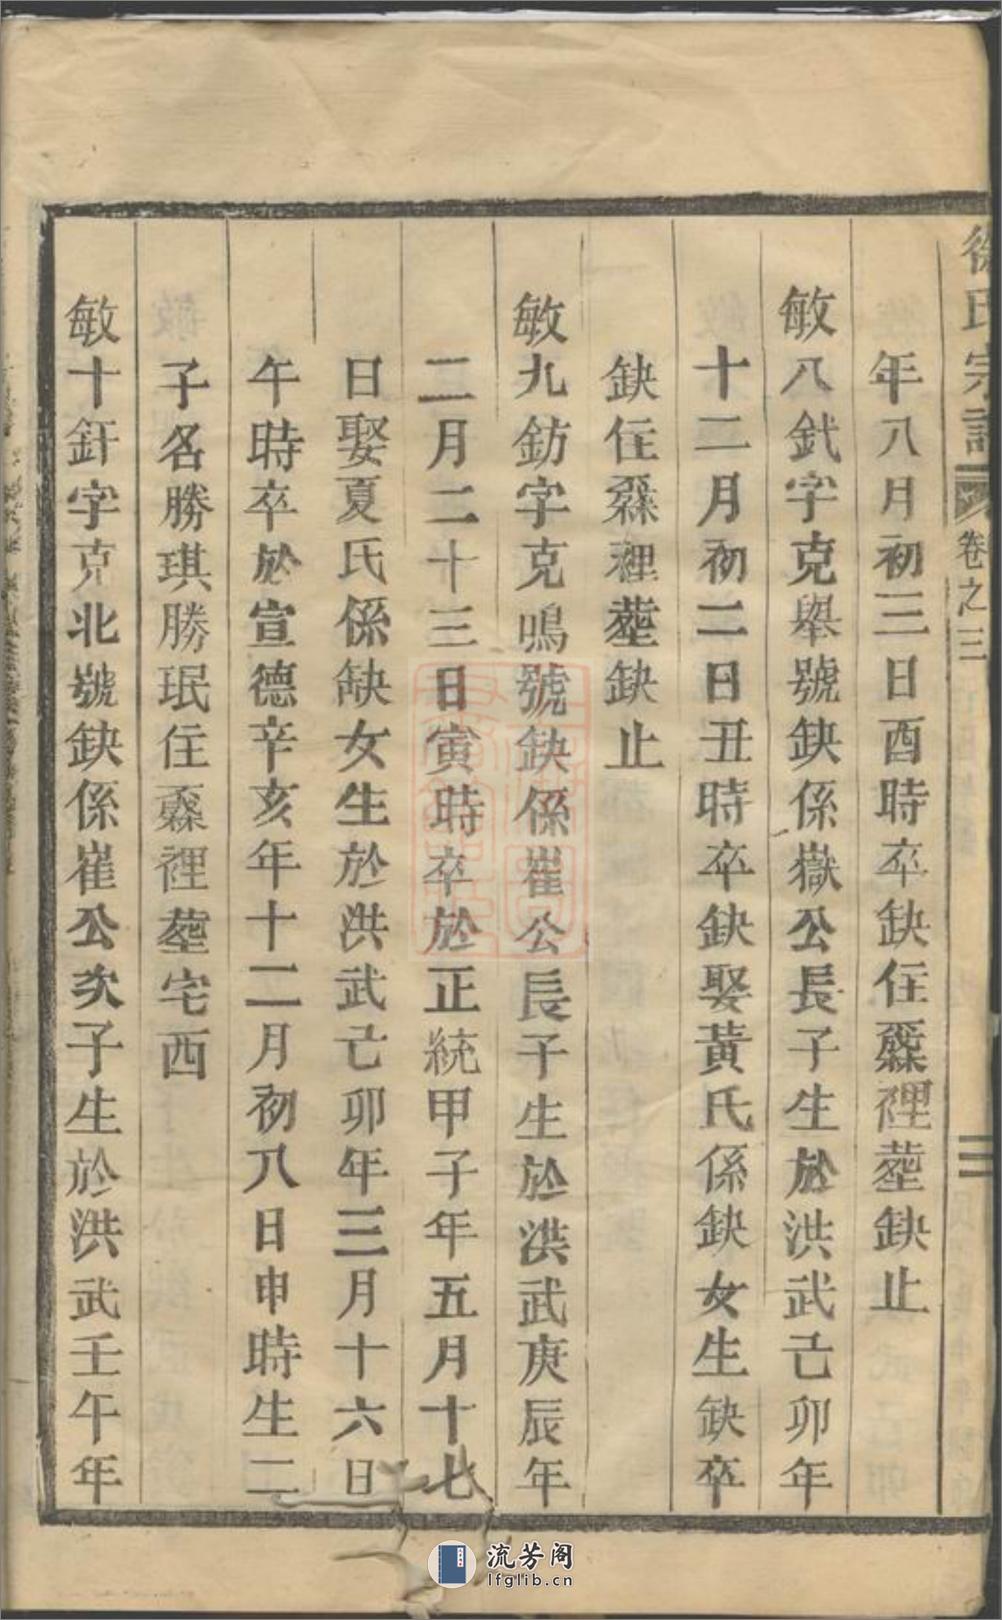 徐氏宗譜 卷之三 二
年八月初三日酉時卒缺住裡塟缺止
敏八釴字克舉號缺係嶽公長子生於洪武己卯年
十二月初二日丑時卒缺娶黃氏係缺女生缺卒
缺住裡塟缺止
敏九鈁字克鳴號缺係崔公長子生於洪武庚辰年
二月二十三日寅時卒於正統甲子年五月十七
日娶夏氏係缺女生於洪武己卯年三月十六日
午時卒於宣德辛亥年十二月初八日申時生二
子名勝琪勝珉住裡塟宅西
敏十釬字克北號缺係崔公次子生於洪武壬午年
流芳阁
lfglib.cn